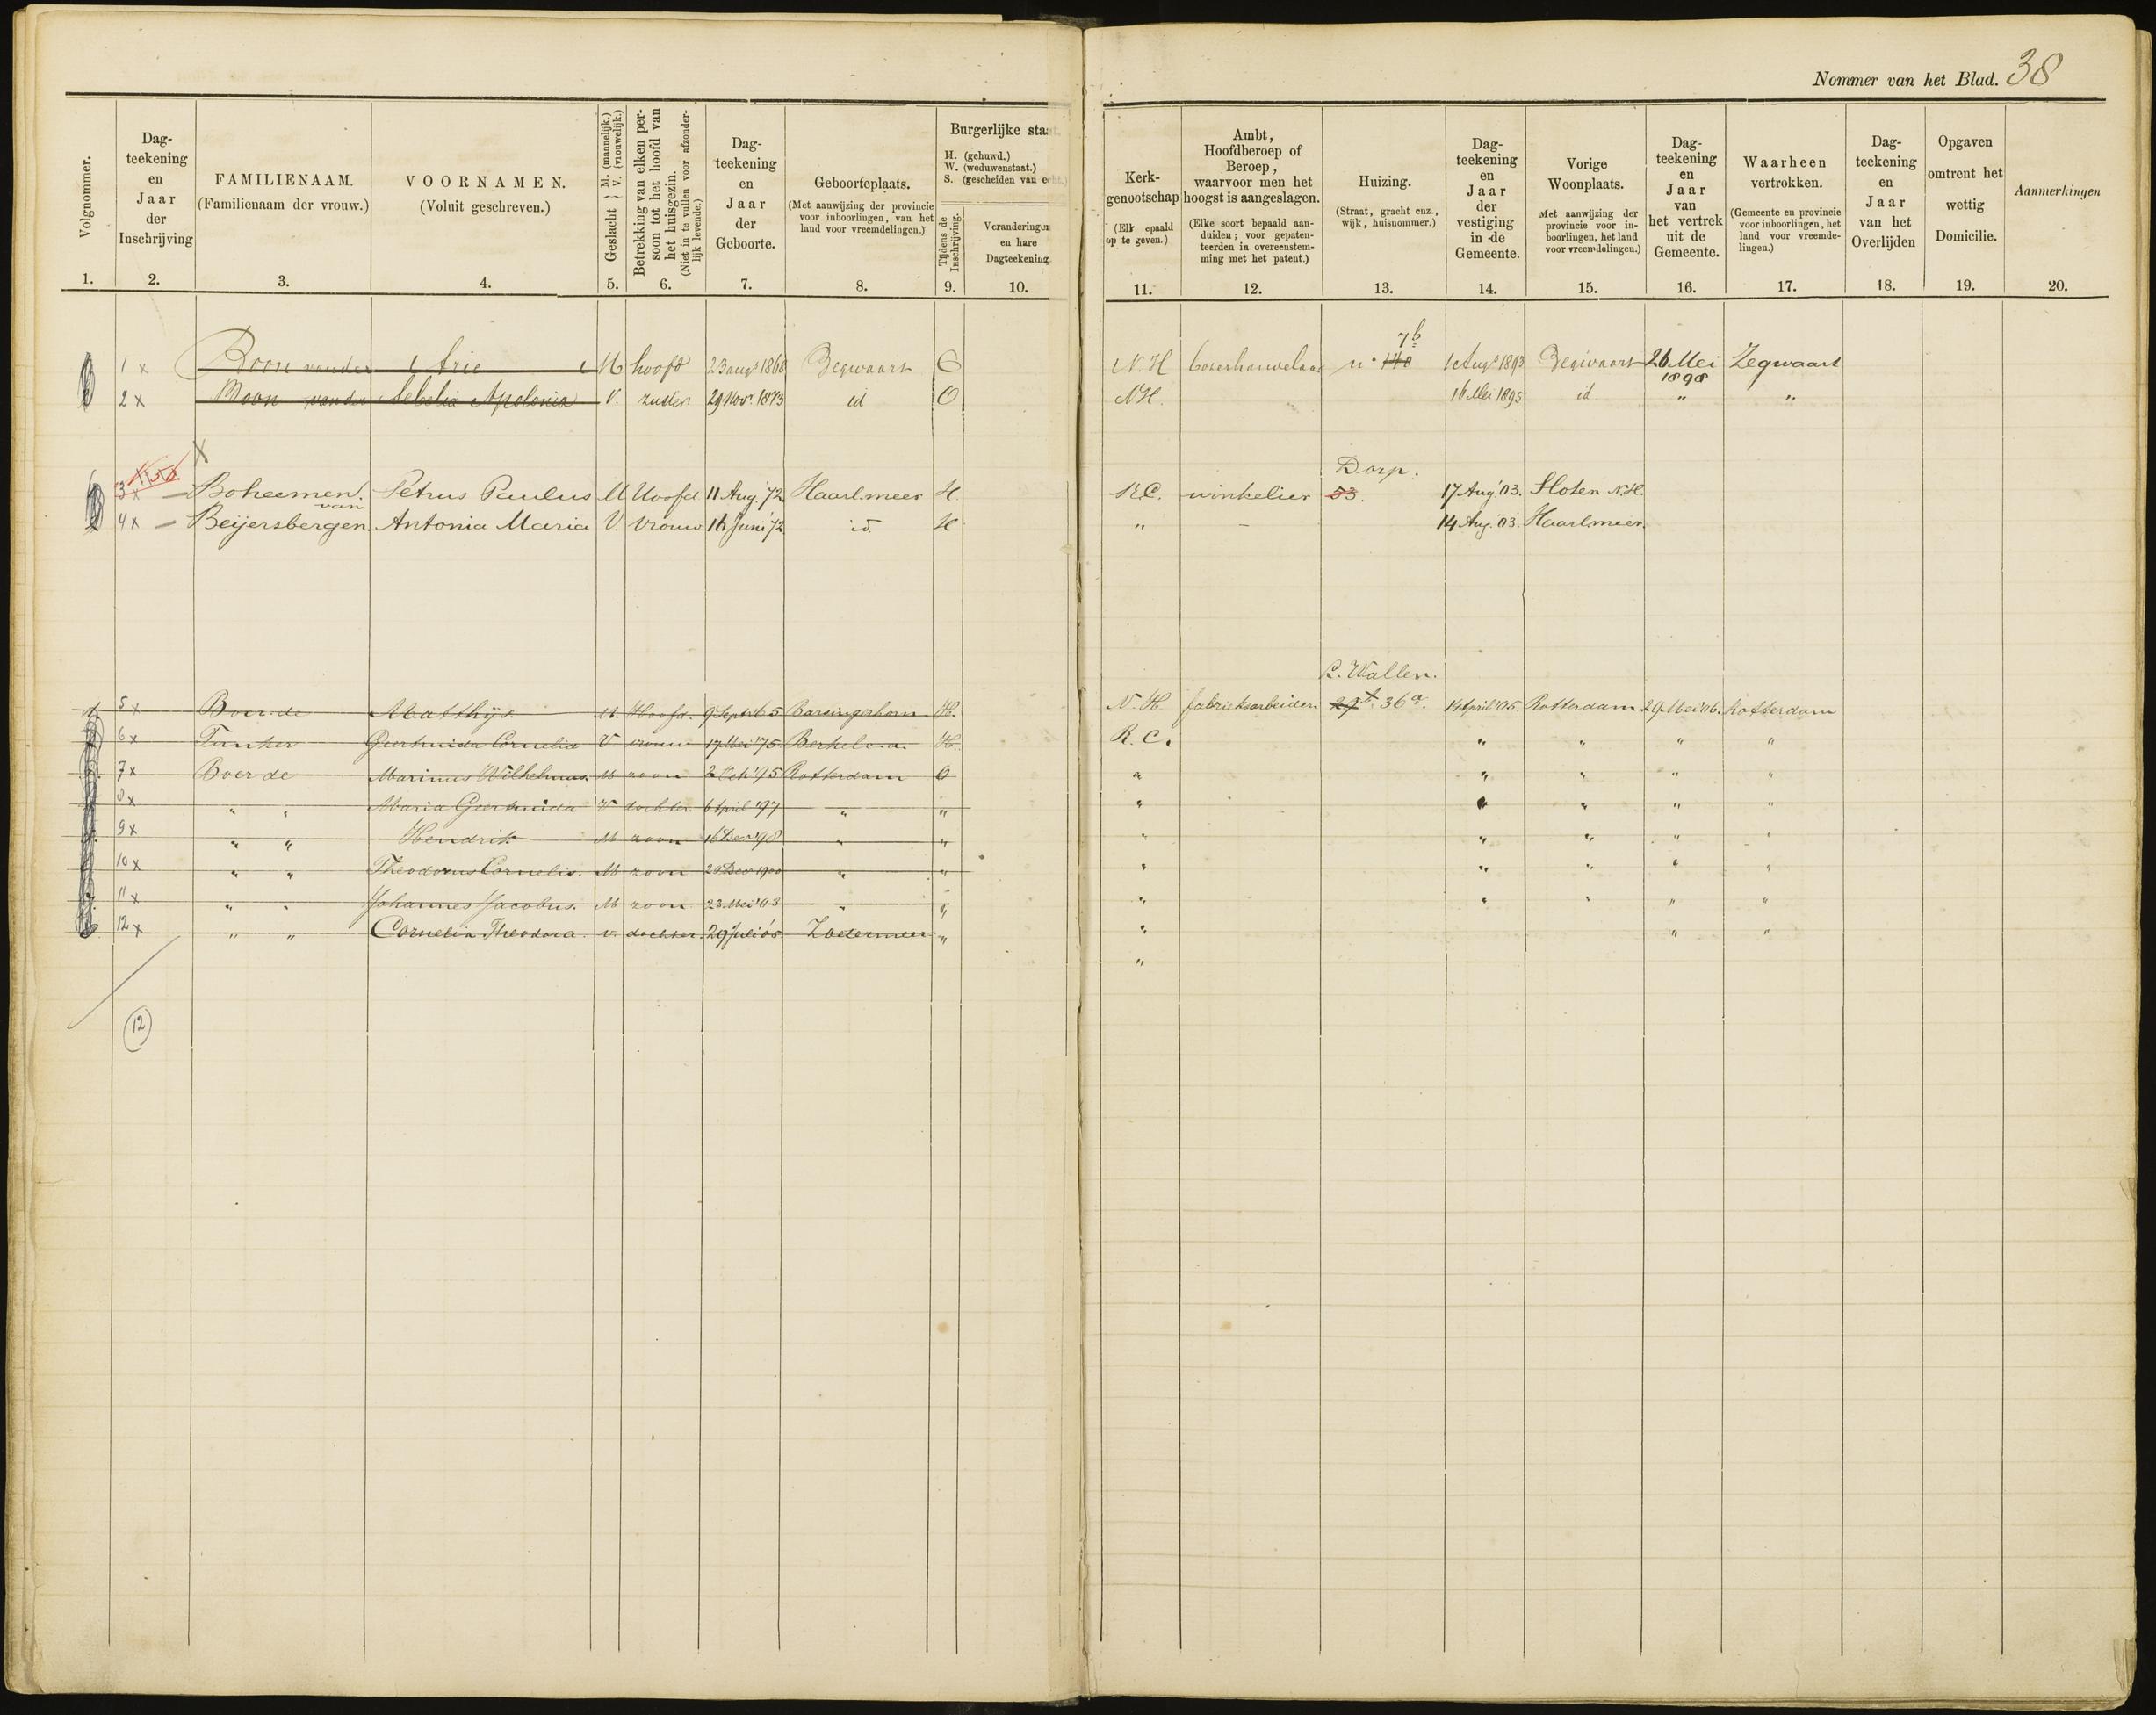 Nommer van het Blad. 38
Volgnommer. 1.
Dag-
teekening
en
Jaar
der
Inschrijving
2.
FAMILIENAAM.
(Familienaam der vrouw.)
3.
VOORNAMEN.
(Voluit geschreven.)
4.
Geslacht } M. (mannelijk.) V. (vrouwelijk.)
5.
Betrekking van elken per-
soon tot het hoofd van
het huisgezin.
(Niet in te vullen voor afzonder-
lijk levende.)
6.
Dag-
teekening
en
Jaar
der
Geboorte.
7.
Geboorteplaats.
(Met aanwijzing der provincie
voor inboorlingen, van het
land voor vreemdelingen.)
8.
Burgerlijke staat.
H. (gehuwd.)
W. (weduwenstaat.)
S. (gescheiden van echt.)
Tijdens de
Inschrijving.
9.
Veranderingen
en hare
Dagteekening
10.
Kerk-
genootschap
op te geven.)
11.
Ambt,
Hoofdberoep of
Beroep,
waarvoor men het
hoogst is aangeslagen.
(Elke soort bepaald aan-
duiden; voor gepaten-
teerden in overeenstem-
ming met het patent.)
12.
Huizing.
(Straat, gracht enz.,
wijk, huisnommer.)
13.
Dag-
teekening
en
Jaar
der
vestiging
in de
Gemeente.
14.
Vorige
Woonplaats.
Met aanwijzing der
provincie voor in-
boorlingen, het land
voor vreemdelingen.)
15.
Dag-
teekening
en
Jaar
van
het vertrek
uit de
Gemeente.
16.
Waarheen
vertrokken.
(Gemeente en provincie
voor inboorlingen, het
land voor vreemde-
lingen.)
17.
Dag-
teekening
en
Jaar
van het
Overlijden
18.
Opgaven
omtrent het
wettig
Domicilie.
19.
Aanmerkingen
20.
7b
1 x Boon van der Arie M hoofd 23 augs 1868 Zegwaart O N.H n° 140 1 Augs 1893 Zegwaart 26 Mei Zegwaart
1898
2 x Boon van der Apolonia V. zuster 29 Nov. 1873 id O NH. 16 Mei 1895 id " "
X
Dorp.
3 x Boheemen. Petrus Paulus M Hoofd 11 Aug. '72 Haarl.meer H R.C. winkelier 53. 17 Aug '03. Sloten N.H.
van
4 x Beijersbergen. Antonia Maria V. Vrouw 16 Juni '72 id. H " – 14 Aug. '03. Haarl.meer.
L. Wallen.
5 x Boer de Matthijs M. Hoofd. 9 Sept. '65 Barsingerhorn H. N.H fabrieksarbeider 36a. 14 April '05. Rotterdam 29 Mei '06. Rotterdam
6 x Geertruida Cornelia V vrouw 17 Mei '75 Berkel H. R.C. " " " "
7 x Boer de Marinus Wilhelmus. M zoon 2 Oct '95 Rotterdam O " " " " "
8 x " " Maria Geertruida V dochter 6 April '97 " " " " " " "
9 x " " Hendrik M zoon 16 Dec '98 " " " " " " "
10 x " " Theodorus Cornelis. M zoon 20 Dec 1900 " " " " " " "
11 x " " Johannes Jacobus. M zoon 23 Mei '03 " " " " " " "
12 x " " Cornelia Theodora. v. dochter. 29 Juli '05 Zoetermeer " " " "
"
12